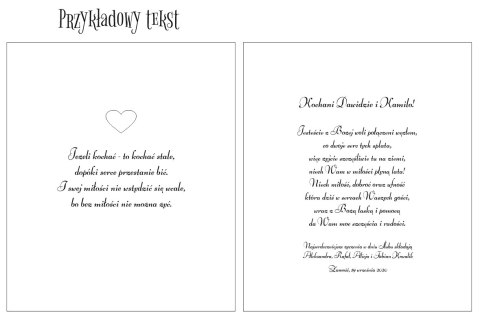 Przykładowy tekst
Jeżeli kochać - to kochać stale,
dopóki serce przestanie bić.
I swej miłości nie wstydzić się wcale,
bo bez miłości nie można żyć.
Kochani Dawidzie i Kamilo!
Jesteście z Bożej woli połączeni węzłem,
co dwoje serc tych splata,
więc żyjcie szczęśliwie tu na ziemi,
niech Wam w miłości płyną lata!
Niech miłość, dobroć oraz ufność
która dziś w sercach Waszych gości,
wraz z Bożą łaską i pomocą
da Wam moc szczęścia i radości.
Najserdeczniejsze życzenia w dniu ślubu składają
Aleksandra, Rafał, Alicja i Fabian Kowalik
Zamość, 19 września 2020